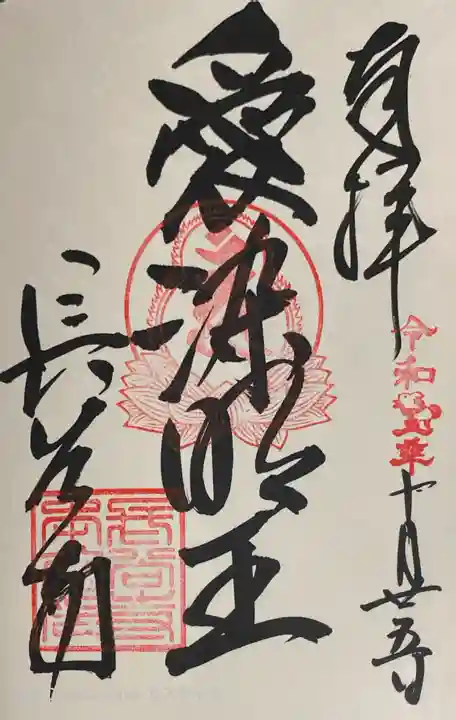 奉拝
令和
年
十月廿五日
愛染明王
長谷寺